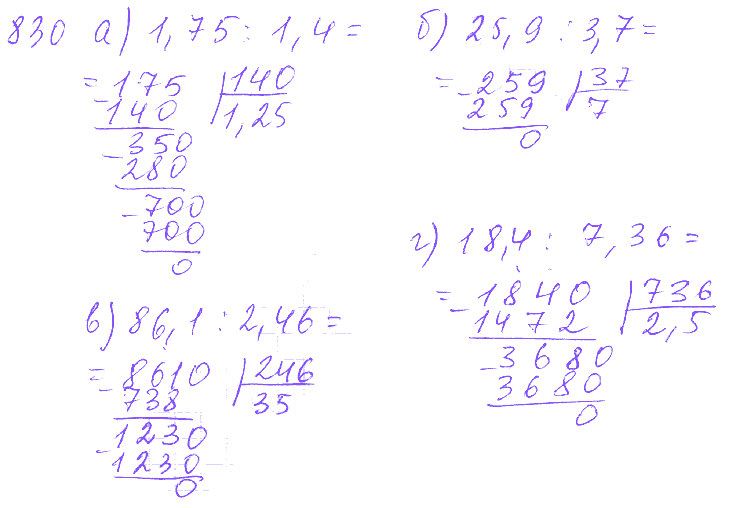 830 а) 1,75 : 1,4 =
= 175 140
- 140 1,25
- 350
280
- 700
700
0
б) 25,9 : 3,7 =
= - 259 37
259 7
0
в) 86,1 : 2,46 =
= - 8610 246
738 35
- 1230
1230
0
г) 18,4 : 7,36 =
= - 1840 736
1472 2,5
- 3680
3680
0